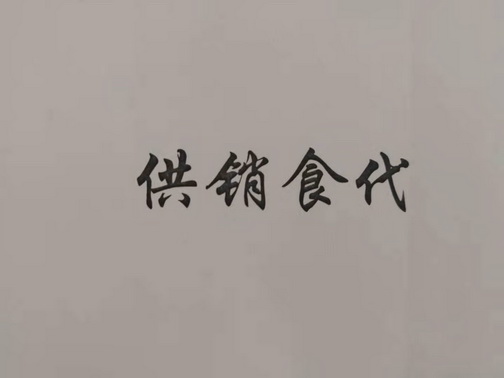 供销食代